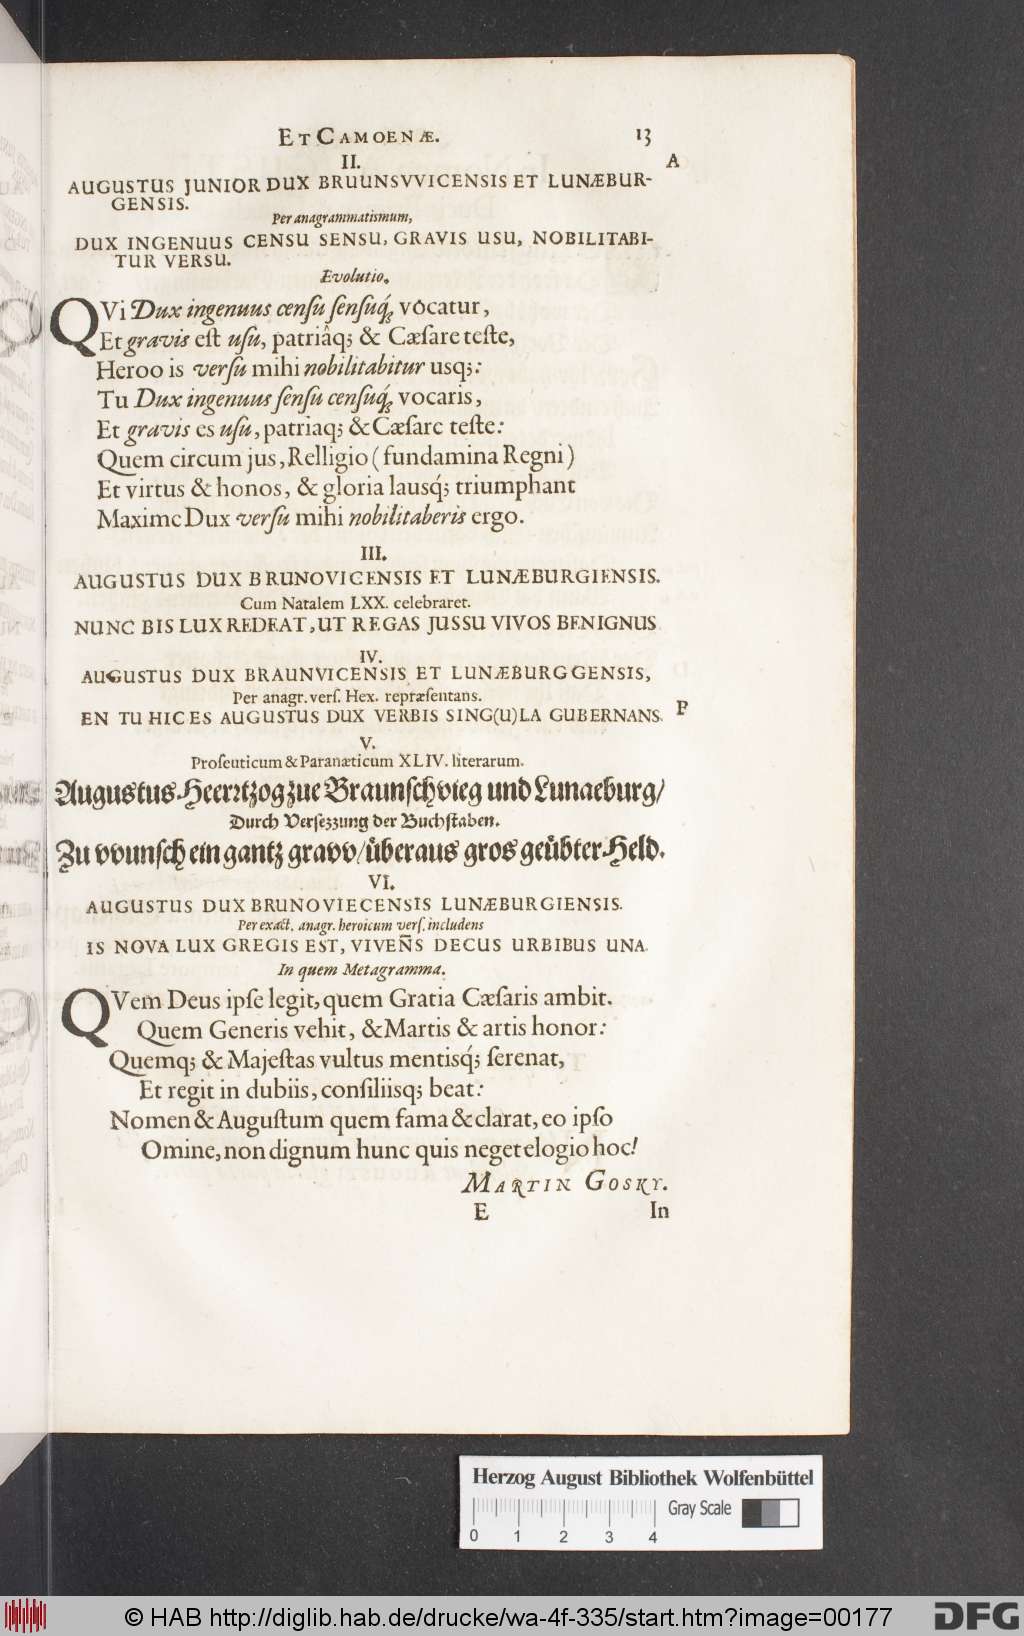 ET CAMOENÆ. 13
II. A
AUGUSTUS JUNIOR DUX BRUUNSVVICENSIS ET LUNÆBUR-
GENSIS.
Per anagrammatismum,
DUX INGENUUS CENSU SENSU, GRAVIS USU, NOBILITABI-
TUR VERSU.
Evolutio.
QVi Dux ingenuus censu sensuq́; vocatur,
Et gravis est usu, patriâq; & Cæsare teste,
Heroo is versu mihi nobilitabitur usq;:
Tu Dux ingenuus sensu censuq́; vocaris,
Et gravis es usu, patriaq; & Cæsare teste:
Quem circum jus, Relligio (fundamina Regni)
Et virtus & honos, & gloria lausq́; triumphant
Maxime Dux versu mihi nobilitaberis ergo.
III.
AUGUSTUS DUX BRUNOVICENSIS ET LUNÆBURGIENSIS.
Cum Natalem LXX. celebraret.
NUNC BIS LUX REDEAT, UT REGAS JUSSU VIVOS BENIGNUS.
IV.
AUGUSTUS DUX BRAUNVICENSIS ET LUNÆBURGGENSIS,
Per anagr. vers. Hex. repræsentans.
EN TU HIC ES AUGUSTUS DUX VERBIS SING(U)LA GUBERNANS. F
V.
Proseuticum & Paranæticum XLIV. literarum.
Augustus Heertzog zue Braunschvieg und Lunaeburg/
Durch Versezzung der Buchstaben.
Zu vvunsch ein gantz gravv/überaus gros geübter Held.
VI.
AUGUSTUS DUX BRUNOVIECENSIS LUNÆBURGIENSIS.
Per exact. anagr. heroicum vers. includens
IS NOVA LUX GREGIS EST, VIVEÑS DECUS URBIBUS UNA.
In quem Metagramma.
QVem Deus ipse legit, quem Gratia Cæsaris ambit.
Quem Generis vehit, & Martis & artis honor:
Quemq; & Majestas vultus mentisq́; serenat,
Et regit in dubiis, consiliisq; beat:
Nomen & Augustum quem fama & clarat, eo ipso
Omine, non dignum hunc quis neget elogio hoc!
MARTIN GOSKY.
E In
Herzog August Bibliothek Wolfenbüttel
Gray Scale
0 1 2 3 4
© HAB http://diglib.hab.de/drucke/wa-4f-335/start.htm?image=00177
DFG